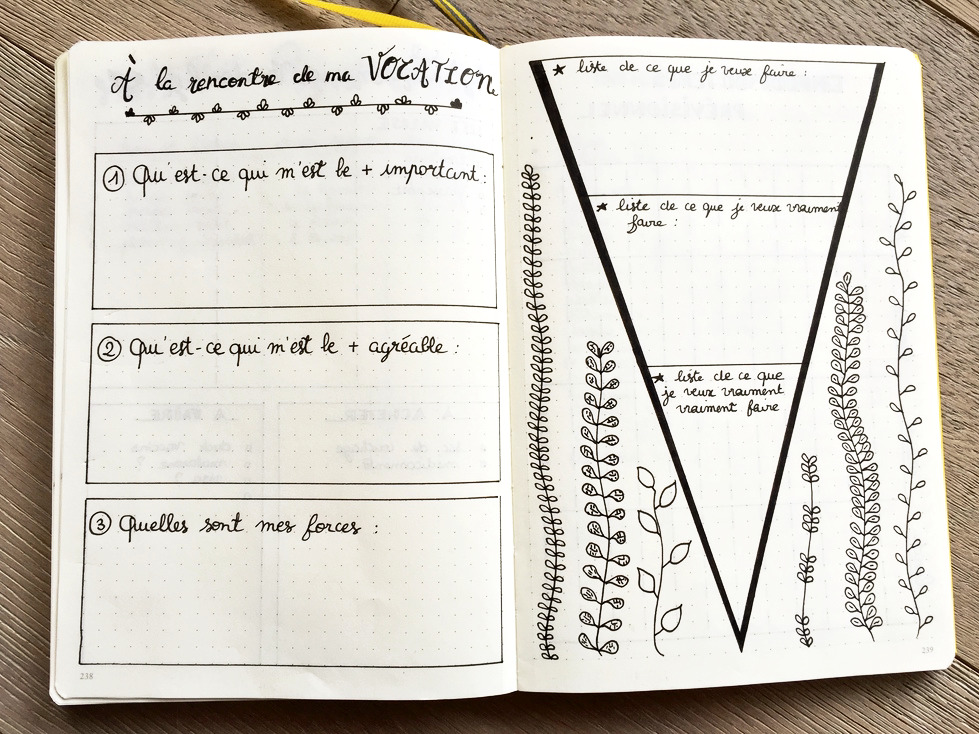 À la rencontre de ma VOCATION
① Qu'est-ce qui m'est le + important :
② Qu'est-ce qui m'est le + agréable :
③ Quelles sont mes forces :
238
★ liste de ce que je veux faire :
★ liste de ce que je veux vraiment
faire :
★ liste de ce que
je veux vraiment
vraiment faire
239